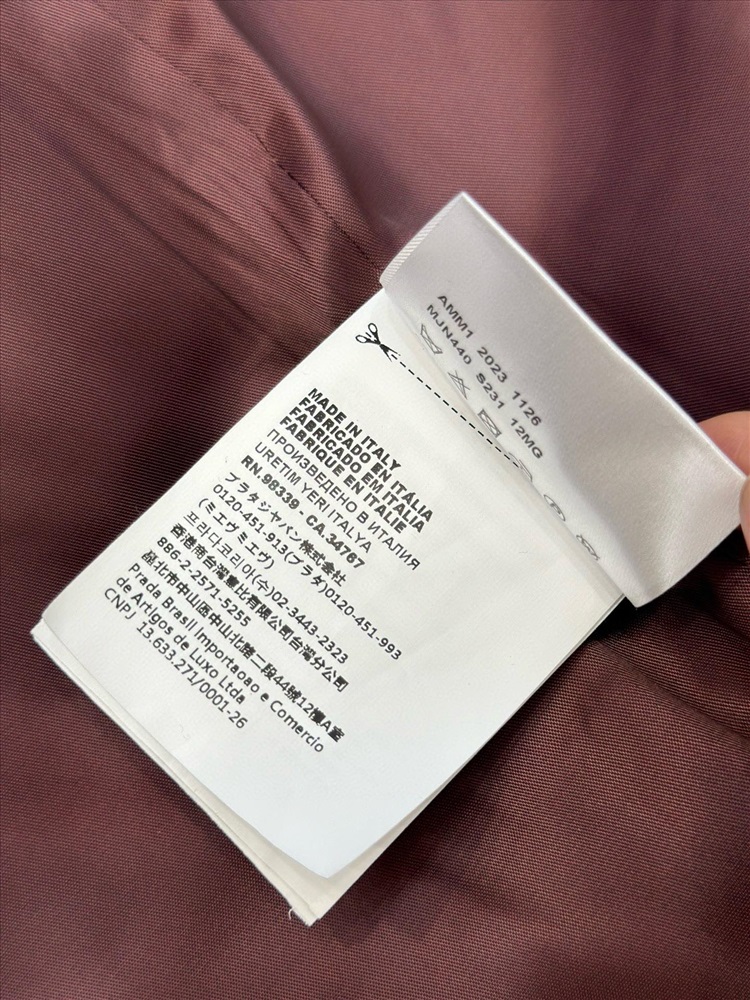 AMM1 2023 1126
MJN440 S231 12MG
MADE IN ITALY
FABRICADO EN ITALIA
FABRICADO EM ITALIA
FABRIQUE EN ITALIE
ПРОИЗВЕДЕНО В ИТАЛИЯ
URETIM YERI ITALYA
RN.98339 - CA.34767
プラダジャパン株式会社
0120-451-913(プラダ)0120-451-993
(ミエウミエウ)
프라다코리아(수)02-3443-2323
香港商台灣普比有限公司台灣分公司
886-2-2571-5255
品北市中山區中山北路二段44號12樓A室
Prada Brasil Importaoao e Comercio
de Artigos de Luxo Ltda
CNPJ 13.633.271/0001-26